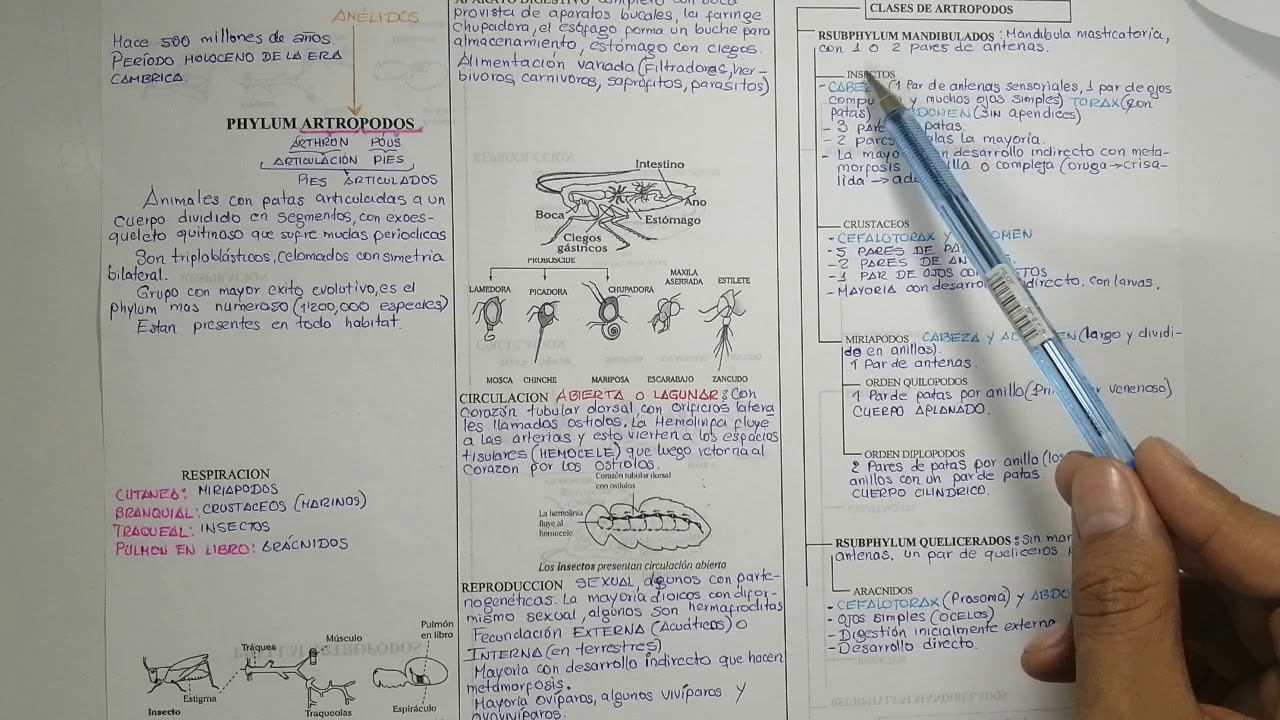 ANÉLIDOS
Hace 500 millones de años
PERÍODO HOLOCENO DE LA ERA
CAMBRICA.
PHYLUM ARTROPODOS
ARTHRON POUS
ARTICULACIÓN PIES
PIES ARTICULADOS
Animales con patas articuladas a un
cuerpo dividido en segmentos, con exoes-
queleto quitinoso que sufre mudas periodicas
Son triploblásticos, celomados con simetria
bilateral.
Grupo con mayor exito evolutivo, es el
phylum mas numeroso (1'200,000 especies)
Estan presentes en todo habitat.
RESPIRACION
CUTANEA: MIRIAPODOS
BRANQUIAL: CRUSTACEOS (MARINOS)
TRAQUEAL: INSECTOS
PULMON EN LIBRO: ARÁCNIDOS
Músculo
Tráquea
Pulmón
en libro
Estigma
Insecto
Traqueolas
Espiráculo
APARATO DIGESTIVO completo con boca
provista de aparatos bucales, la faringe
chupadora, el esófago forma un buche para
almacenamiento, estómago con ciegos.
Alimentación variada (Filtradores, her-
bivoros, carnivoros, saprófitos, parasitos)
Intestino
Ano
Boca
Estómago
Ciegos
gástricos
PROBOSCIDE
LAMEDORA
PICADORA
CHUPADORA
MAXILA
ASERRADA
ESTILETE
MOSCA CHINCHE MARIPOSA ESCARABAJO ZANCUDO
CIRCULACION ABIERTA O LAGUNAR: Con
corazón tubular dorsal, con orificios latera
les llamados ostiolos. La Hemolinfa fluye
a las arterias y esto vierten a los espacios
tisulares (HEMOCELE) que luego retorna al
corazon por los ostiolos.
Corazón tubular dorsal
con ostiolos
La hemolinfa
fluye al
hemocele
Los insectos presentan circulación abierta
REPRODUCCION SEXUAL, algunos con parte-
nogenéticas. La mayoría dioicos con difor-
mismo sexual, algunos son hermafroditas
Fecundación EXTERNA (Acuáticos) O
INTERNA (en terrestres)
Mayoria con desarrollo indirecto que hacen
metamorfosis.
Mayoría Ovíparos, algunos vivíparos y
ovovivíparos.
CLASES DE ARTROPODOS
RSUBPHYLUM MANDIBULADOS: Mandibula masticatoria,
con 1 O 2 pares de antenas.
INSECTOS
- CABEZ (1 Par de antenas sensoriales, 1 par de ojos
compu y muchos ojos simples) TORAX (con
patas) DOMEN (SIN apendices)
- 3 pare patas.
- 2 pares alas la mayoría.
- La mayo n desarrollo indirecto con meta-
morfosis illa o compleja (oruga → crisa-
lida → adu
CRUSTACEOS
- CEFALOTORAX Y OMEN
- 5 PARES DE PA
- 2 PARES DE AN
- 1 PAR DE OJOS CO TOS
- MAYORIA con desarro directo, con larvas.
MIRIAPODOS CABEZA Y ABD EN (largo y dividi-
do en anillos).
1 Par de antenas.
ORDEN QUILOPODOS
1 Par de patas por anillo (Pri r venenoso)
CUERPO APLANADO.
ORDEN DIPLOPODOS
2 Pares de patas por anillo (los
anillos con un par de patas.
CUERPO CILINDRICO.
RSUBPHYLUM QUELICERADOS: Sin man
antenas, un par de queliceros
ARACNIDOS
- CEFALOTORAX (Prosoma) y ABDO
- OJOS SIMPLES (OCELOS)
- Digestión inicialmente externa
- Desarrollo directo.